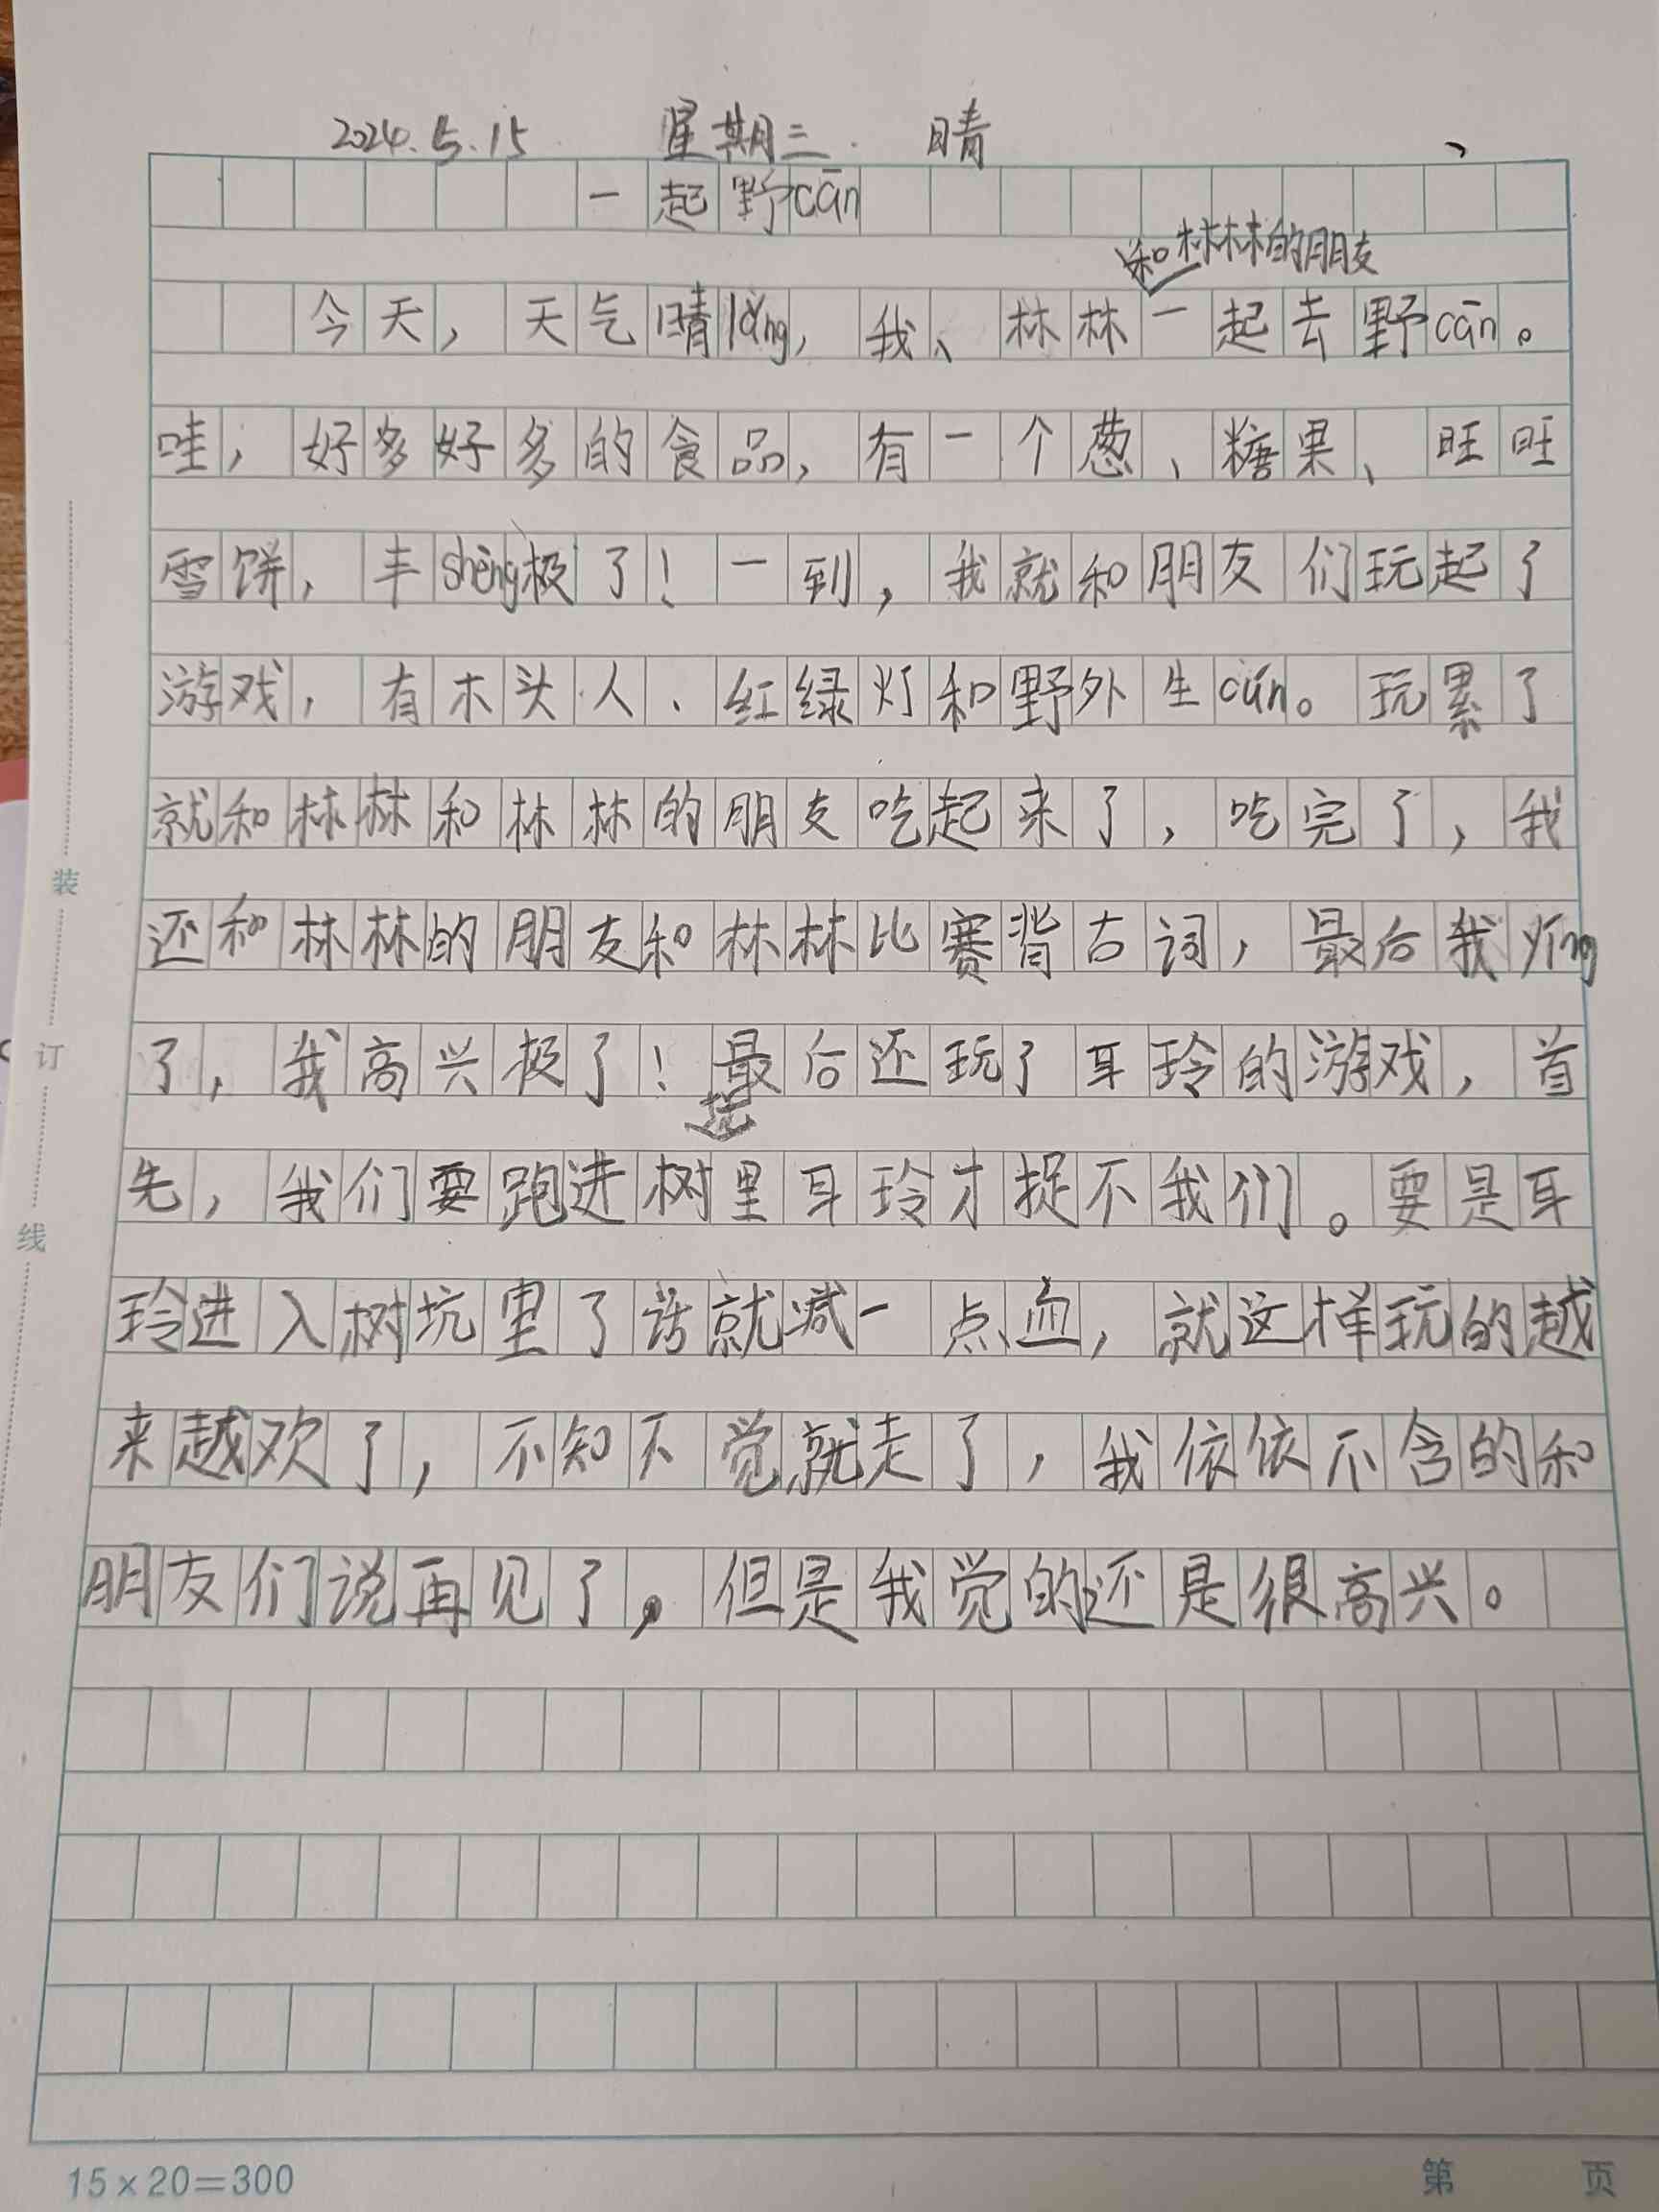 2024.5.15 星期三 晴
一起野cān
和林林的朋友
今天，天气晴lǎng，我、林林一起去野cān。
哇，好多好多的食品，有一个葱、糖果、旺旺
雪饼，丰shèng极了！一到，我就和朋友们玩起了
游戏，有木头人、红绿灯和野外生cún。玩累了
就和林林和林林的朋友吃起来了，吃完了，我
还和林林的朋友和林林比赛背古词，最后我yíng
了，我高兴极了！最后还玩了耳玲的游戏，首
先，我们要跑进树里耳玲才捉不我们。要是耳
坑
玲进入树坑里了话就减一点血，就这样玩的越
来越欢了，不知不觉就走了，我依依不含的和
朋友们说再见了，但是我觉的还是很高兴。
装
订
线
15×20=300
第 页